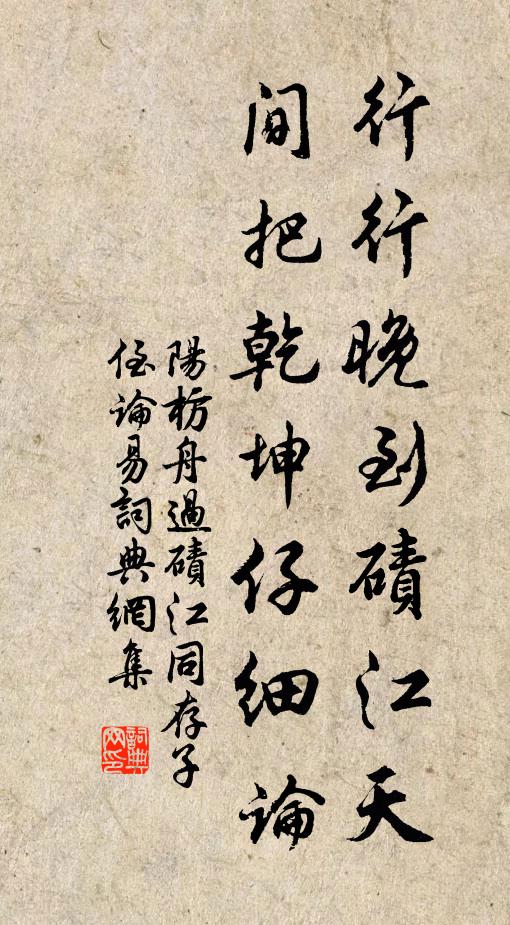 行行晚到磧江天
間把乾坤仔細論
陽枋舟過磧江同存子
侄論易詞典網集
詞典網印